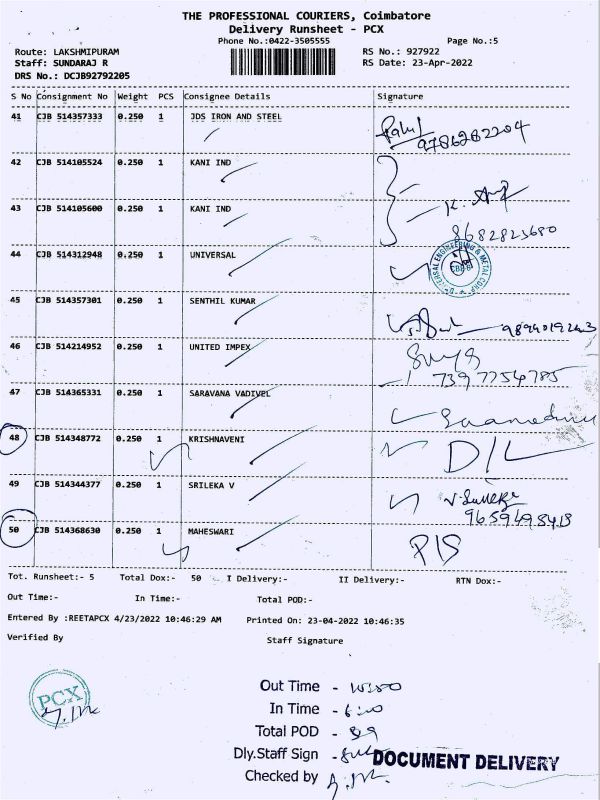 THE PROFESSIONAL COURIERS, Coimbatore
Delivery Runsheet - PCX
Phone No.:0422-3505555 Page No.:5
Route: LAKSHMIPURAM RS No.: 927922
Staff: SUNDARAJ R RS Date: 23-Apr-2022
DRS No.: DCJB92792205
S No Consignment No Weight PCS Consignee Details Signature
41 CJB 514357333 0.250 1 JDS IRON AND STEEL
9786282204
42 CJB 514105524 0.250 1 KANI IND
43 CJB 514105600 0.250 1 KANI IND
8682823680
44 CJB 514312948 0.250 1 UNIVERSAL
45 CJB 514357301 0.250 1 SENTHIL KUMAR
46 CJB 514214952 0.250 1 UNITED IMPEX
7397754785
47 CJB 514365331 0.250 1 SARAVANA VADIVEL
48 CJB 514348772 0.250 1 KRISHNAVENI D/L
49 CJB 514344377 0.250 1 SRILEKA V
50 CJB 514368630 0.250 1 MAHESWARI P/S
Tot. Runsheet:- 5 Total Dox:- 50 I Delivery:- II Delivery:- RTN Dox:-
Out Time:- In Time:- Total POD:-
Entered By :REETAPCX 4/23/2022 10:46:29 AM Printed On: 23-04-2022 10:46:35
Verified By Staff Signature
PCX
Out Time -
In Time -
Total POD -
Dly.Staff Sign -
DOCUMENT DELIVERY
Checked by